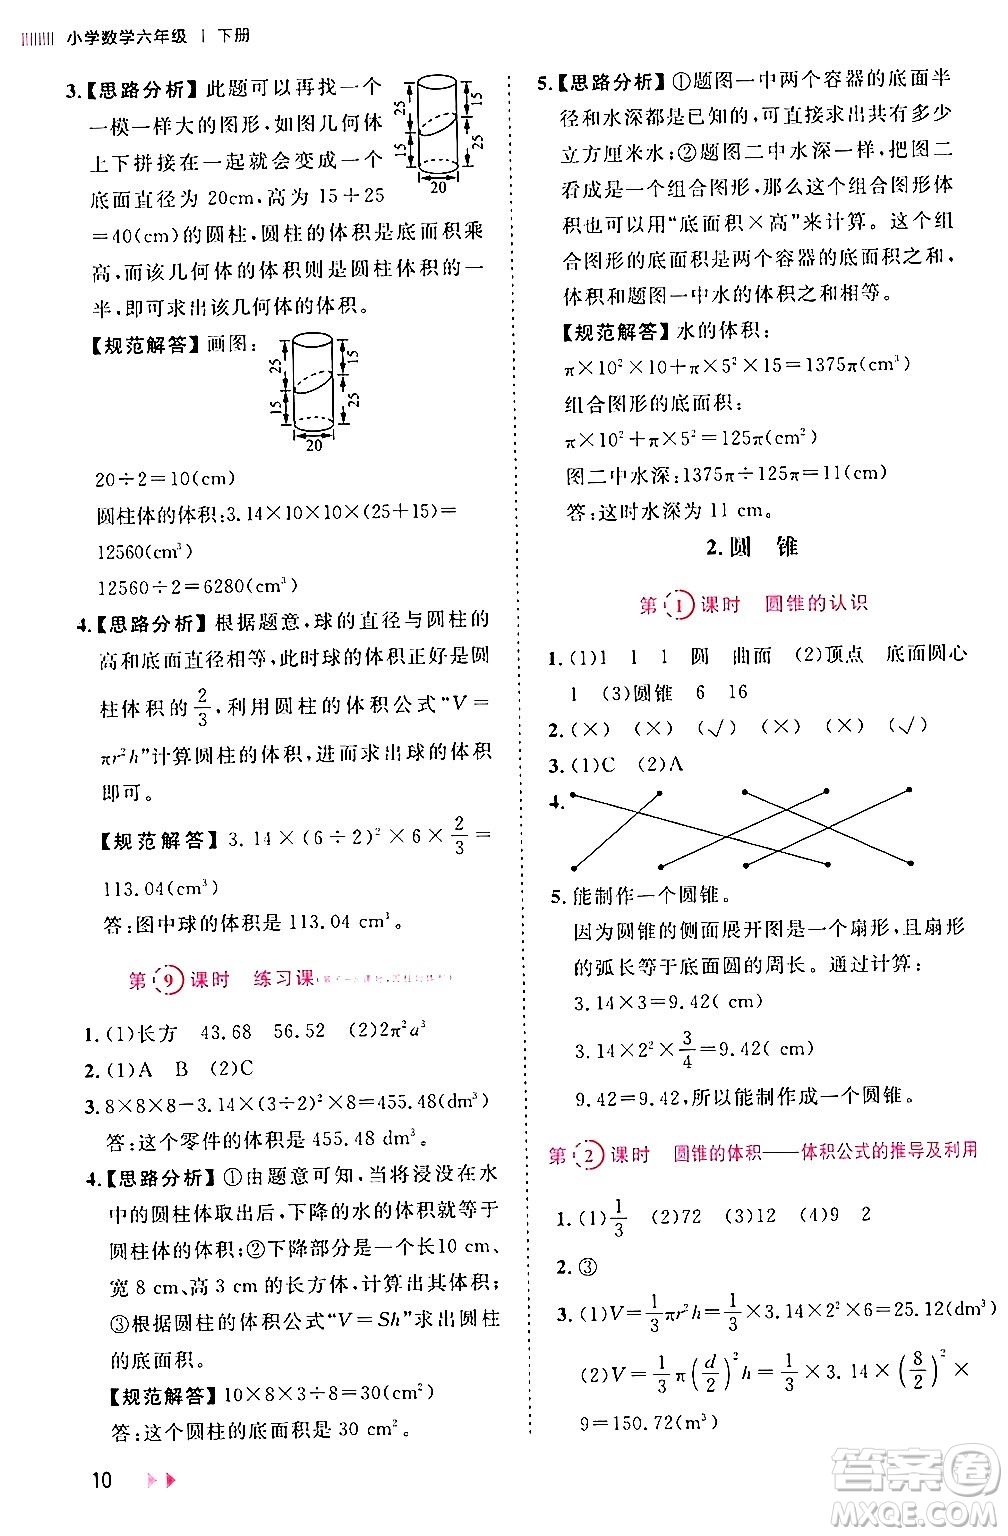 小学数学六年级 | 下册
3.【思路分析】此题可以再找一个
一模一样大的图形,如图几何体
上下拼接在一起就会变成一个
底面直径为 20cm,高为 15+25
=40(cm)的圆柱,圆柱的体积是底面积乘
高,而该几何体的体积则是圆柱体积的一
半,即可求出该几何体的体积。
25 15 15 25 20
【规范解答】画图:
25 15 15 25 20
20÷2=10(cm)
圆柱体的体积:3.14×10×10×(25+15)=
12560(cm³)
12560÷2=6280(cm³)
4.【思路分析】根据题意,球的直径与圆柱的
高和底面直径相等,此时球的体积正好是圆
柱体积的2/3,利用圆柱的体积公式“V=
πr²h”计算圆柱的体积,进而求出球的体积
即可。
【规范解答】3.14×(6÷2)²×6×2/3=
113.04(cm³)
答:图中球的体积是 113.04 cm³。
第9课时 练习课
1.(1)长方 43.68 56.52 (2)2π²a³
2.(1)A B (2)C
3.8×8×8-3.14×(3÷2)²×8=455.48(dm³)
答:这个零件的体积是 455.48 dm³。
4.【思路分析】①由题意可知,当将浸没在水
中的圆柱体取出后,下降的水的体积就等于
圆柱体的体积;②下降部分是一个长10 cm、
宽 8 cm、高 3 cm的长方体,计算出体积;
③根据圆柱的体积公式“V=Sh”求出圆柱
的底面积。
【规范解答】10×8×3÷8=30(cm²)
答:这个圆柱的底面积是 30 cm²。
10
5.【思路分析】①题图一中两个容器的底面半
径和水深都是已知的,可直接求出共有多少
立方厘米水;②题图二中水深一样,把图二
看成是一个组合图形,那么这个组合图形体
积可以用“底面积×高”来计算。这个组
合图形的底面积是两个容器的底面积之和,
体积和题图一中水的体积之和相等。
【规范解答】水的体积:
π×10²×10+π×5²×15=1375π(cm³)
组合图形的底面积:
π×10²+π×5²=125π(cm²)
图二中水深:1375π÷125π=11(cm)
答:这时水深为 11 cm。
2.圆 锥
第1课时 圆锥的认识
1.(1)1 1 1 圆 曲面 (2)顶点 底面圆心
1 (3)圆锥 6 16
2.(×) (×) (√) (×) (×) (√)
3.(1)C (2)A
4.
5.能制作一个圆锥。
因为圆锥的侧面展开图是一个扇形,且扇形
的弧长等于底面圆的周长。通过计算:
3.14×3=9.42(cm)
3.14×2²×3/4=9.42(cm)
9.42=9.42,所以能制作成一个圆锥。
第2课时 圆锥的体积——体积公式的推导及利用
1.(1)1/3 (2)72 (3)12 (4)9 2
2.③
3.(1)V=1/3πr²h=1/3×3.14×2²×6=25.12(dm³)
(2)V=1/3π(d/2)²h=1/3×3.14×(8/2)²×
9=150.72(m³)
答案圈
MXQE.COM